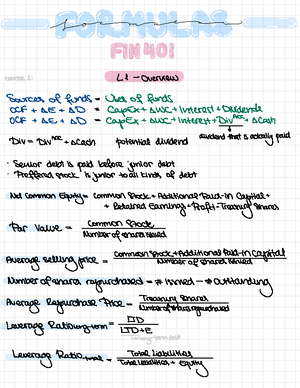 FORMULAS
FIN 401
L1 - Overview
Sources of funds = Uses of funds
OCF + ΔE + ΔD = CapEx + ΔNWC + Interest + Dividends
OCF + ΔE + ΔD = CapEx + ΔNWC + Interest + Div^ACC + ΔCash
Div = Div^ACC + ΔCash potential dividend dividend that is actually paid
· Senior debt is paid before junior debt
· Preffered stock is junior to all kinds of debt
Net Common Equity = Common Stock + Additional Paid-in Capital +
+ Retained Earning + Profit - Treasury Shares
Par Value = Common Stock / Number of shares issued
Average selling price = Common Stock + Additional Paid-in Capital / Number of shares issued
Number of shares repurchased = # Issued - # Outstanding
Average Repurchase Price = Treasury Shares / Number of shares repurchased
Leverage Ratio long-term = LTD / LTD+E
Leverage Ratio total = Total Liabilities / Total Liabilities + Equity